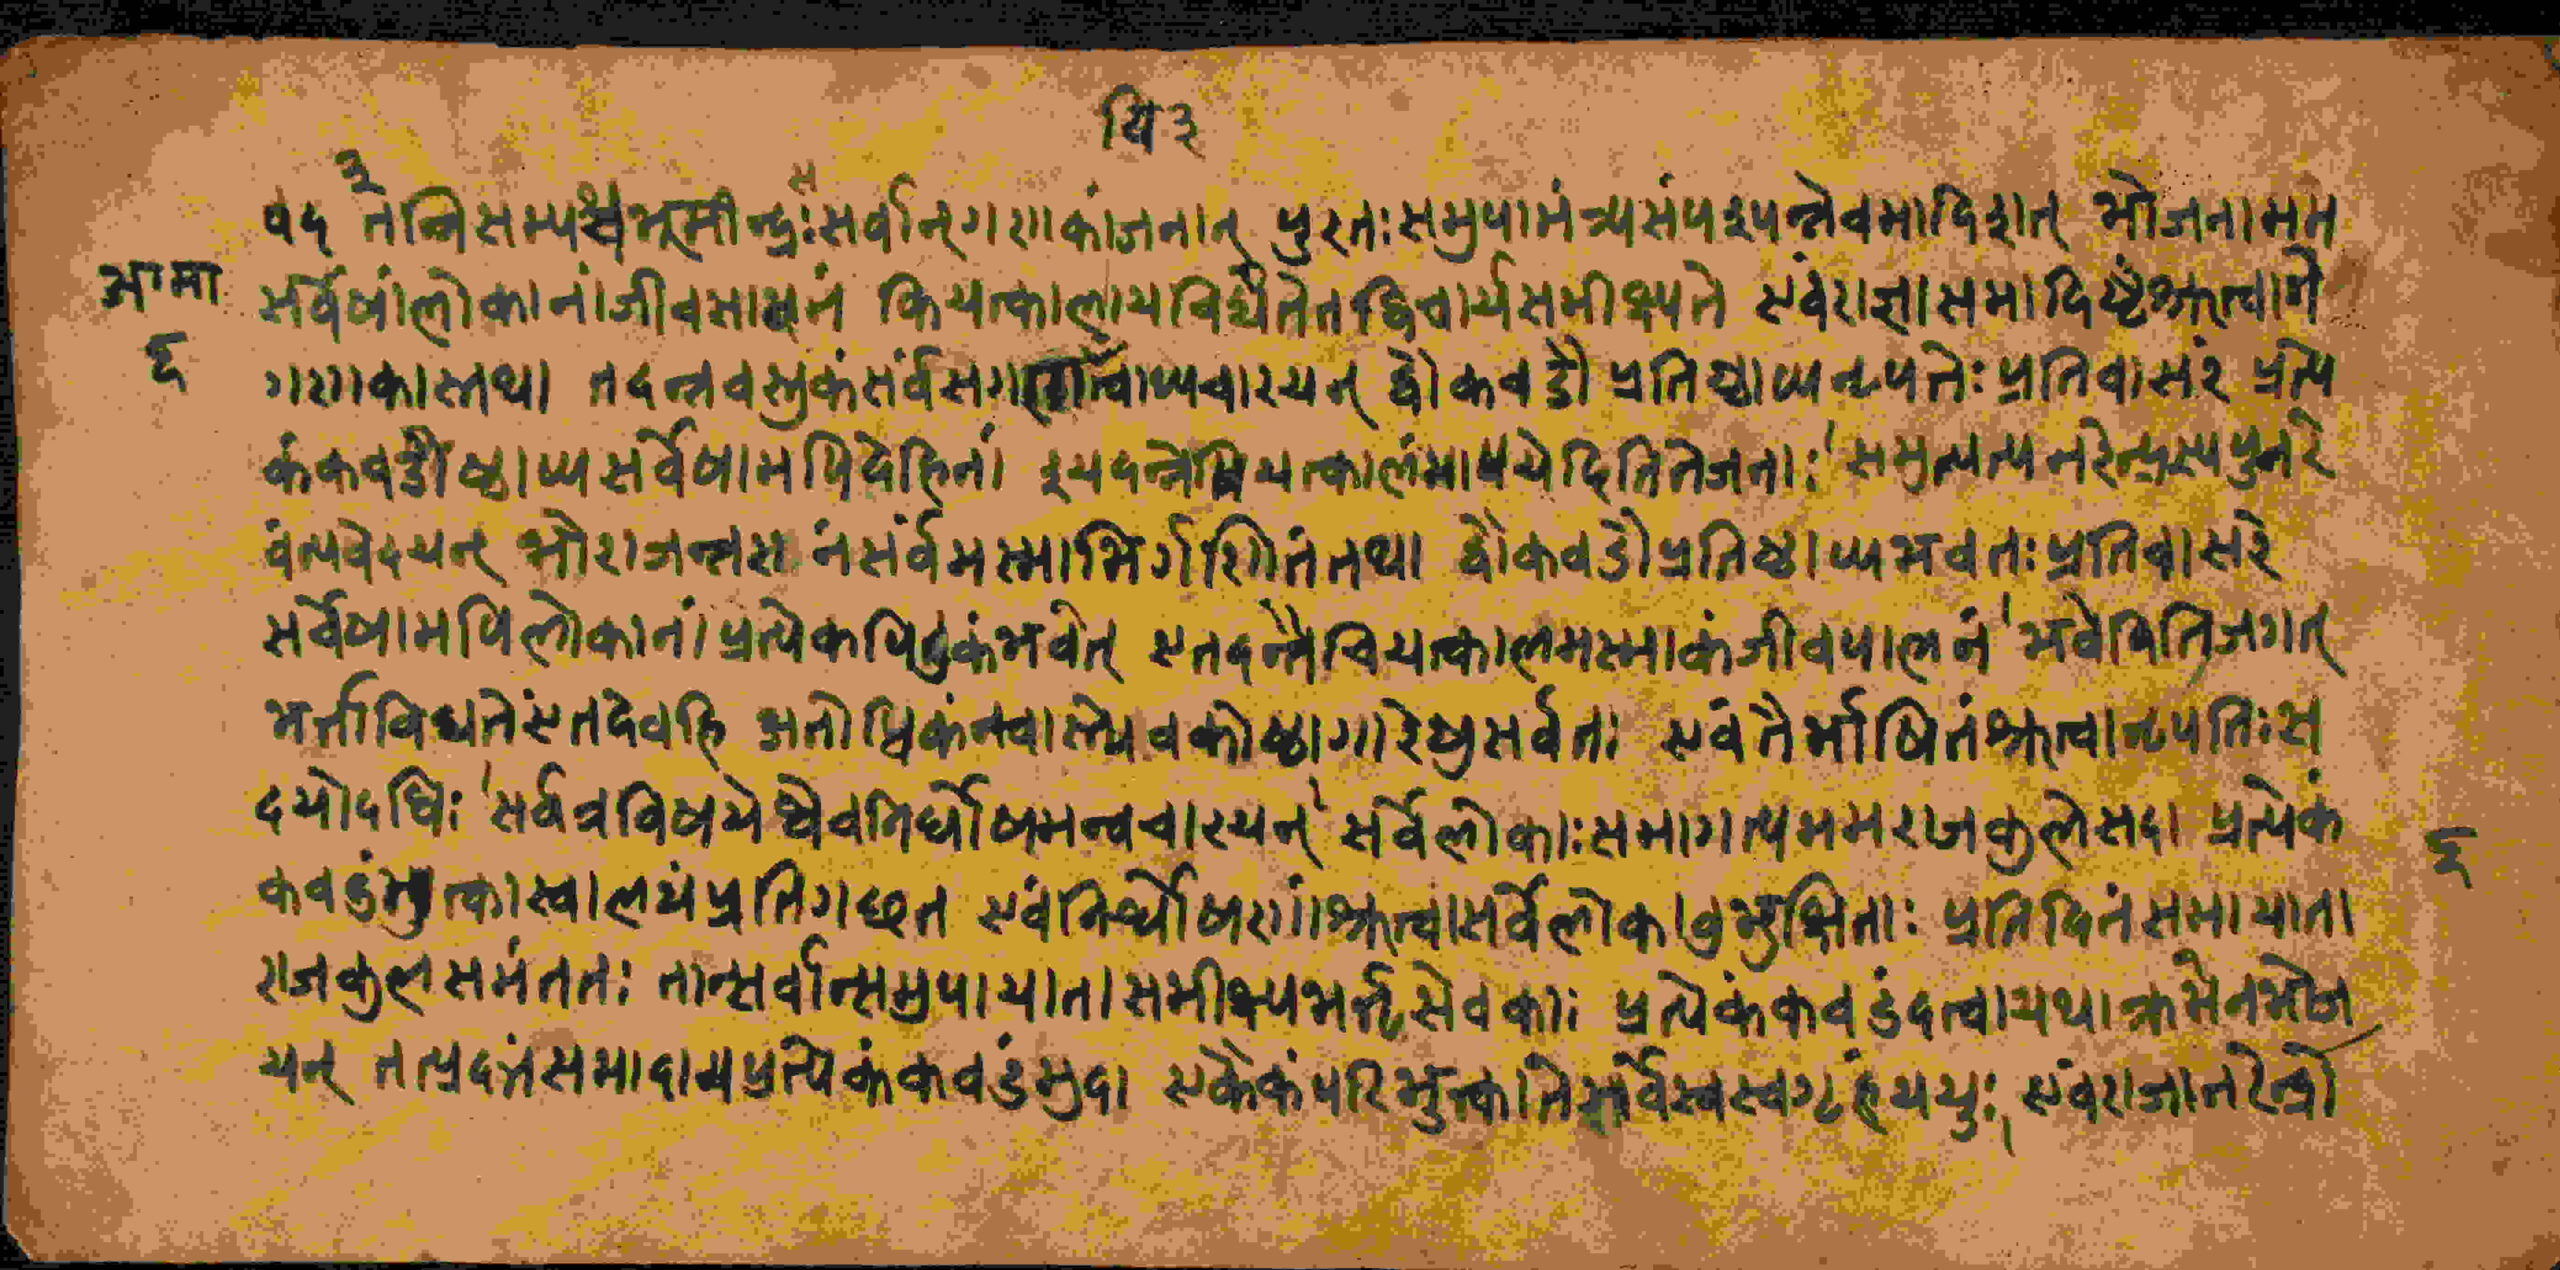 यि ३
वद तन्निसम्य स भूमीन्द्रः सर्वान् गणकांजनान् पुरतः समुपामंत्र्य संपश्यन्नेवमादिशत् भो जना मत
आमा
सर्वेषां लोकानां जीवमासनं कियत्कालाय विद्येते तद्विचार्य समीक्ष्यते एवं राज्ञा समादिष्टं श्रुत्वा ते
६
गणकास्तथा तदन्नवस्तुकं सर्वं वाप्यचारयन् द्वौ कवडौ प्रतिष्ठाप्य नृपतेः प्रतिवासरं प्रत्ये
कं कवडौ ष्ठाप्य सर्वेषामपि देहिनां इयदन्ने यत्कालं यापयेदिति ते जनाः ' समुत्पत्य नरेन्द्रस्य पुनरे
वंत्यवेदयन् भो राजन्नश नं सर्वमस्माभिर्गणितं तथा द्वौ कवडौ प्रतिष्ठाप्य भवतः प्रतिवासरे
सर्वेषामपि लोकानां प्रत्येकपिण्डुकं भवेत् एतदन्नै चियत्कालमस्माकं जीवपालनं ' भवेदिति जगत्
भर्ता विद्यते एतदेव हि अतोधिकं नवास्त्येव कोष्ठागारेषु सर्वतः एवं तैर्भाषितं श्रुत्वा नृपतिः स
दयोदधिः ' सर्वत्र विषये श्वेव निर्घोषमन्वचारयन् ' सर्वे लोकाः समागत्य मम राजकुले सदा प्रत्येकं
६
कवडं भुत्का स्वालयं प्रतिगछत एवं निर्घोषणां श्रुत्वा सर्वे लोका वुभुक्षिताः प्रतिदिनं समायाता
राजकुल समंततः तान्सर्वान्समुपायाता समीक्ष्य भर्तृसेवकाः प्रत्येकं कवडं दत्वा यथाक्रमेनभोज
यन् तत्प्रदत्तं समादाय प्रत्येकं कवडं मुदा एकैकं परिभुत्का ते सर्वे स्वस्वगृहं ययुः एवं राजा नरेन्द्रो